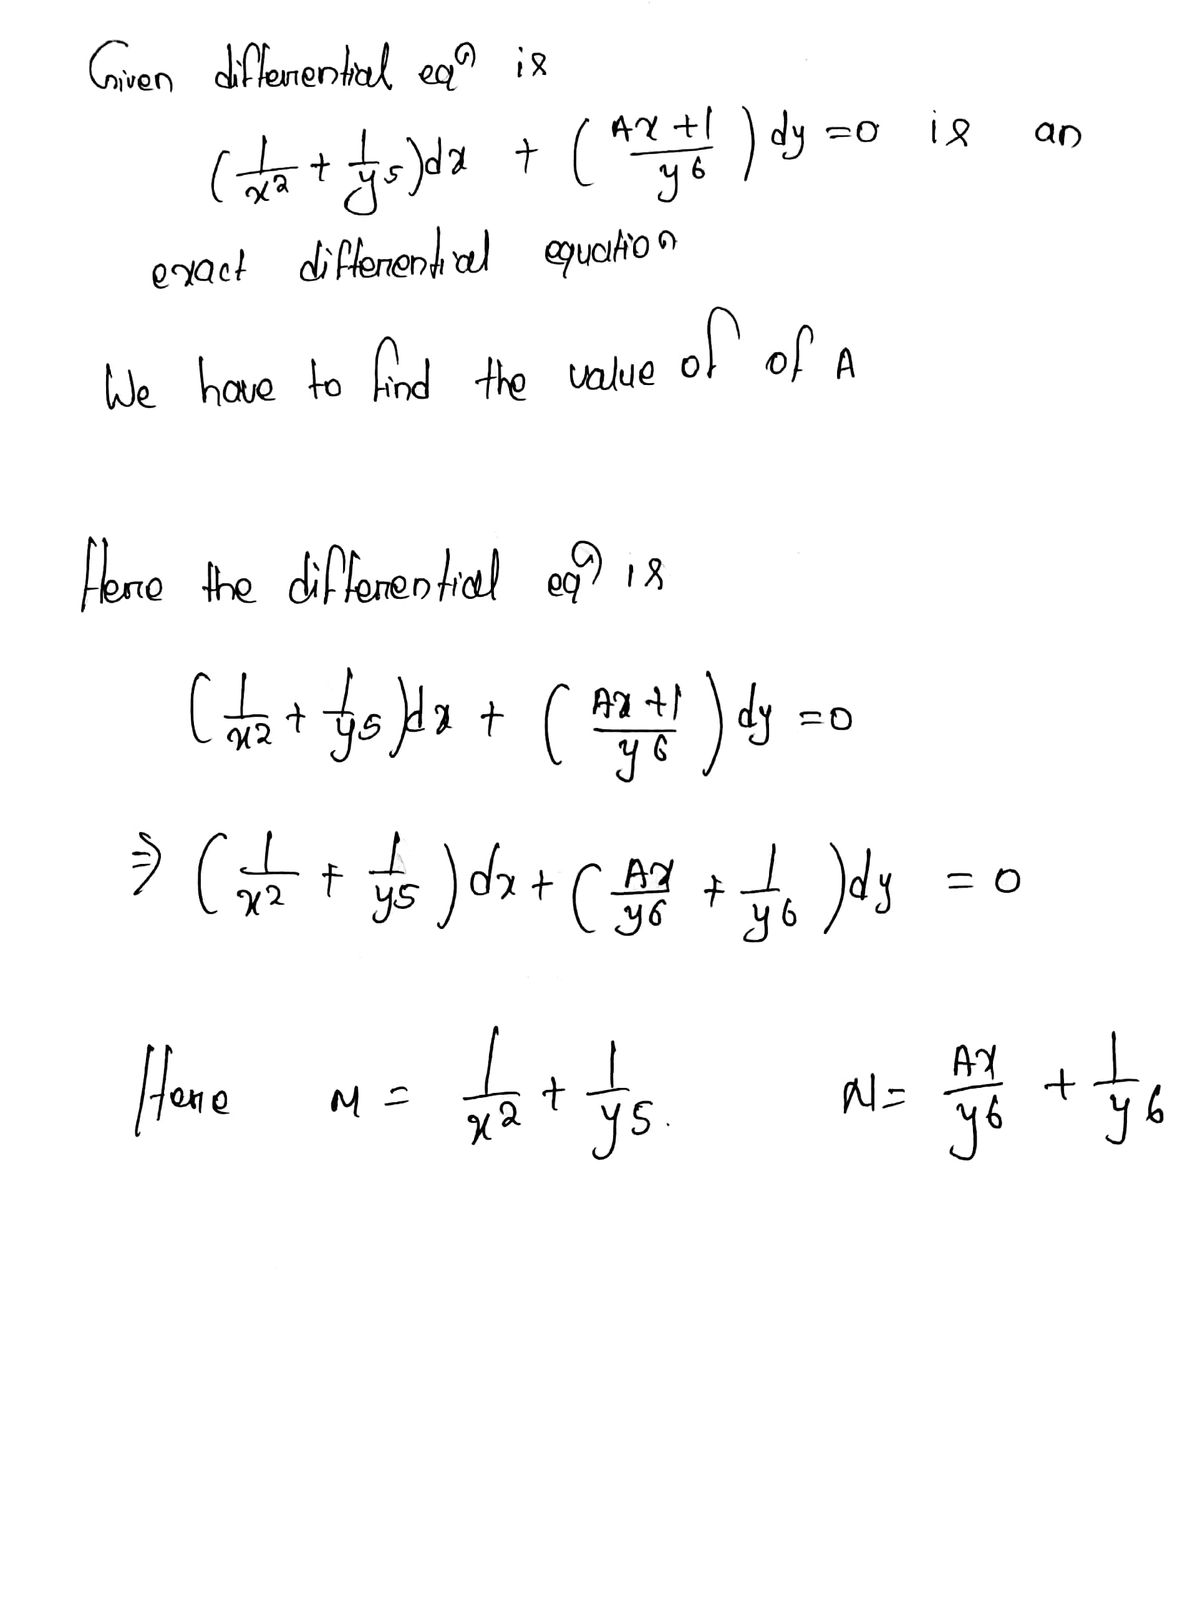 Given differential eqn is
(1/x2 + 1/y5)dx + (Ax+1/y6)dy =0 is an
exact differential equation
We have to find the value of of A
Here the differential eqn is
(1/x2 + 1/y5)dx + (Ax+1/y6)dy =0
⇒ (1/x2 + 1/y5)dx + (Ax/y6 + 1/y6)dy = 0
Here M = 1/x2 + 1/y5. N = Ax/y6 + 1/y6